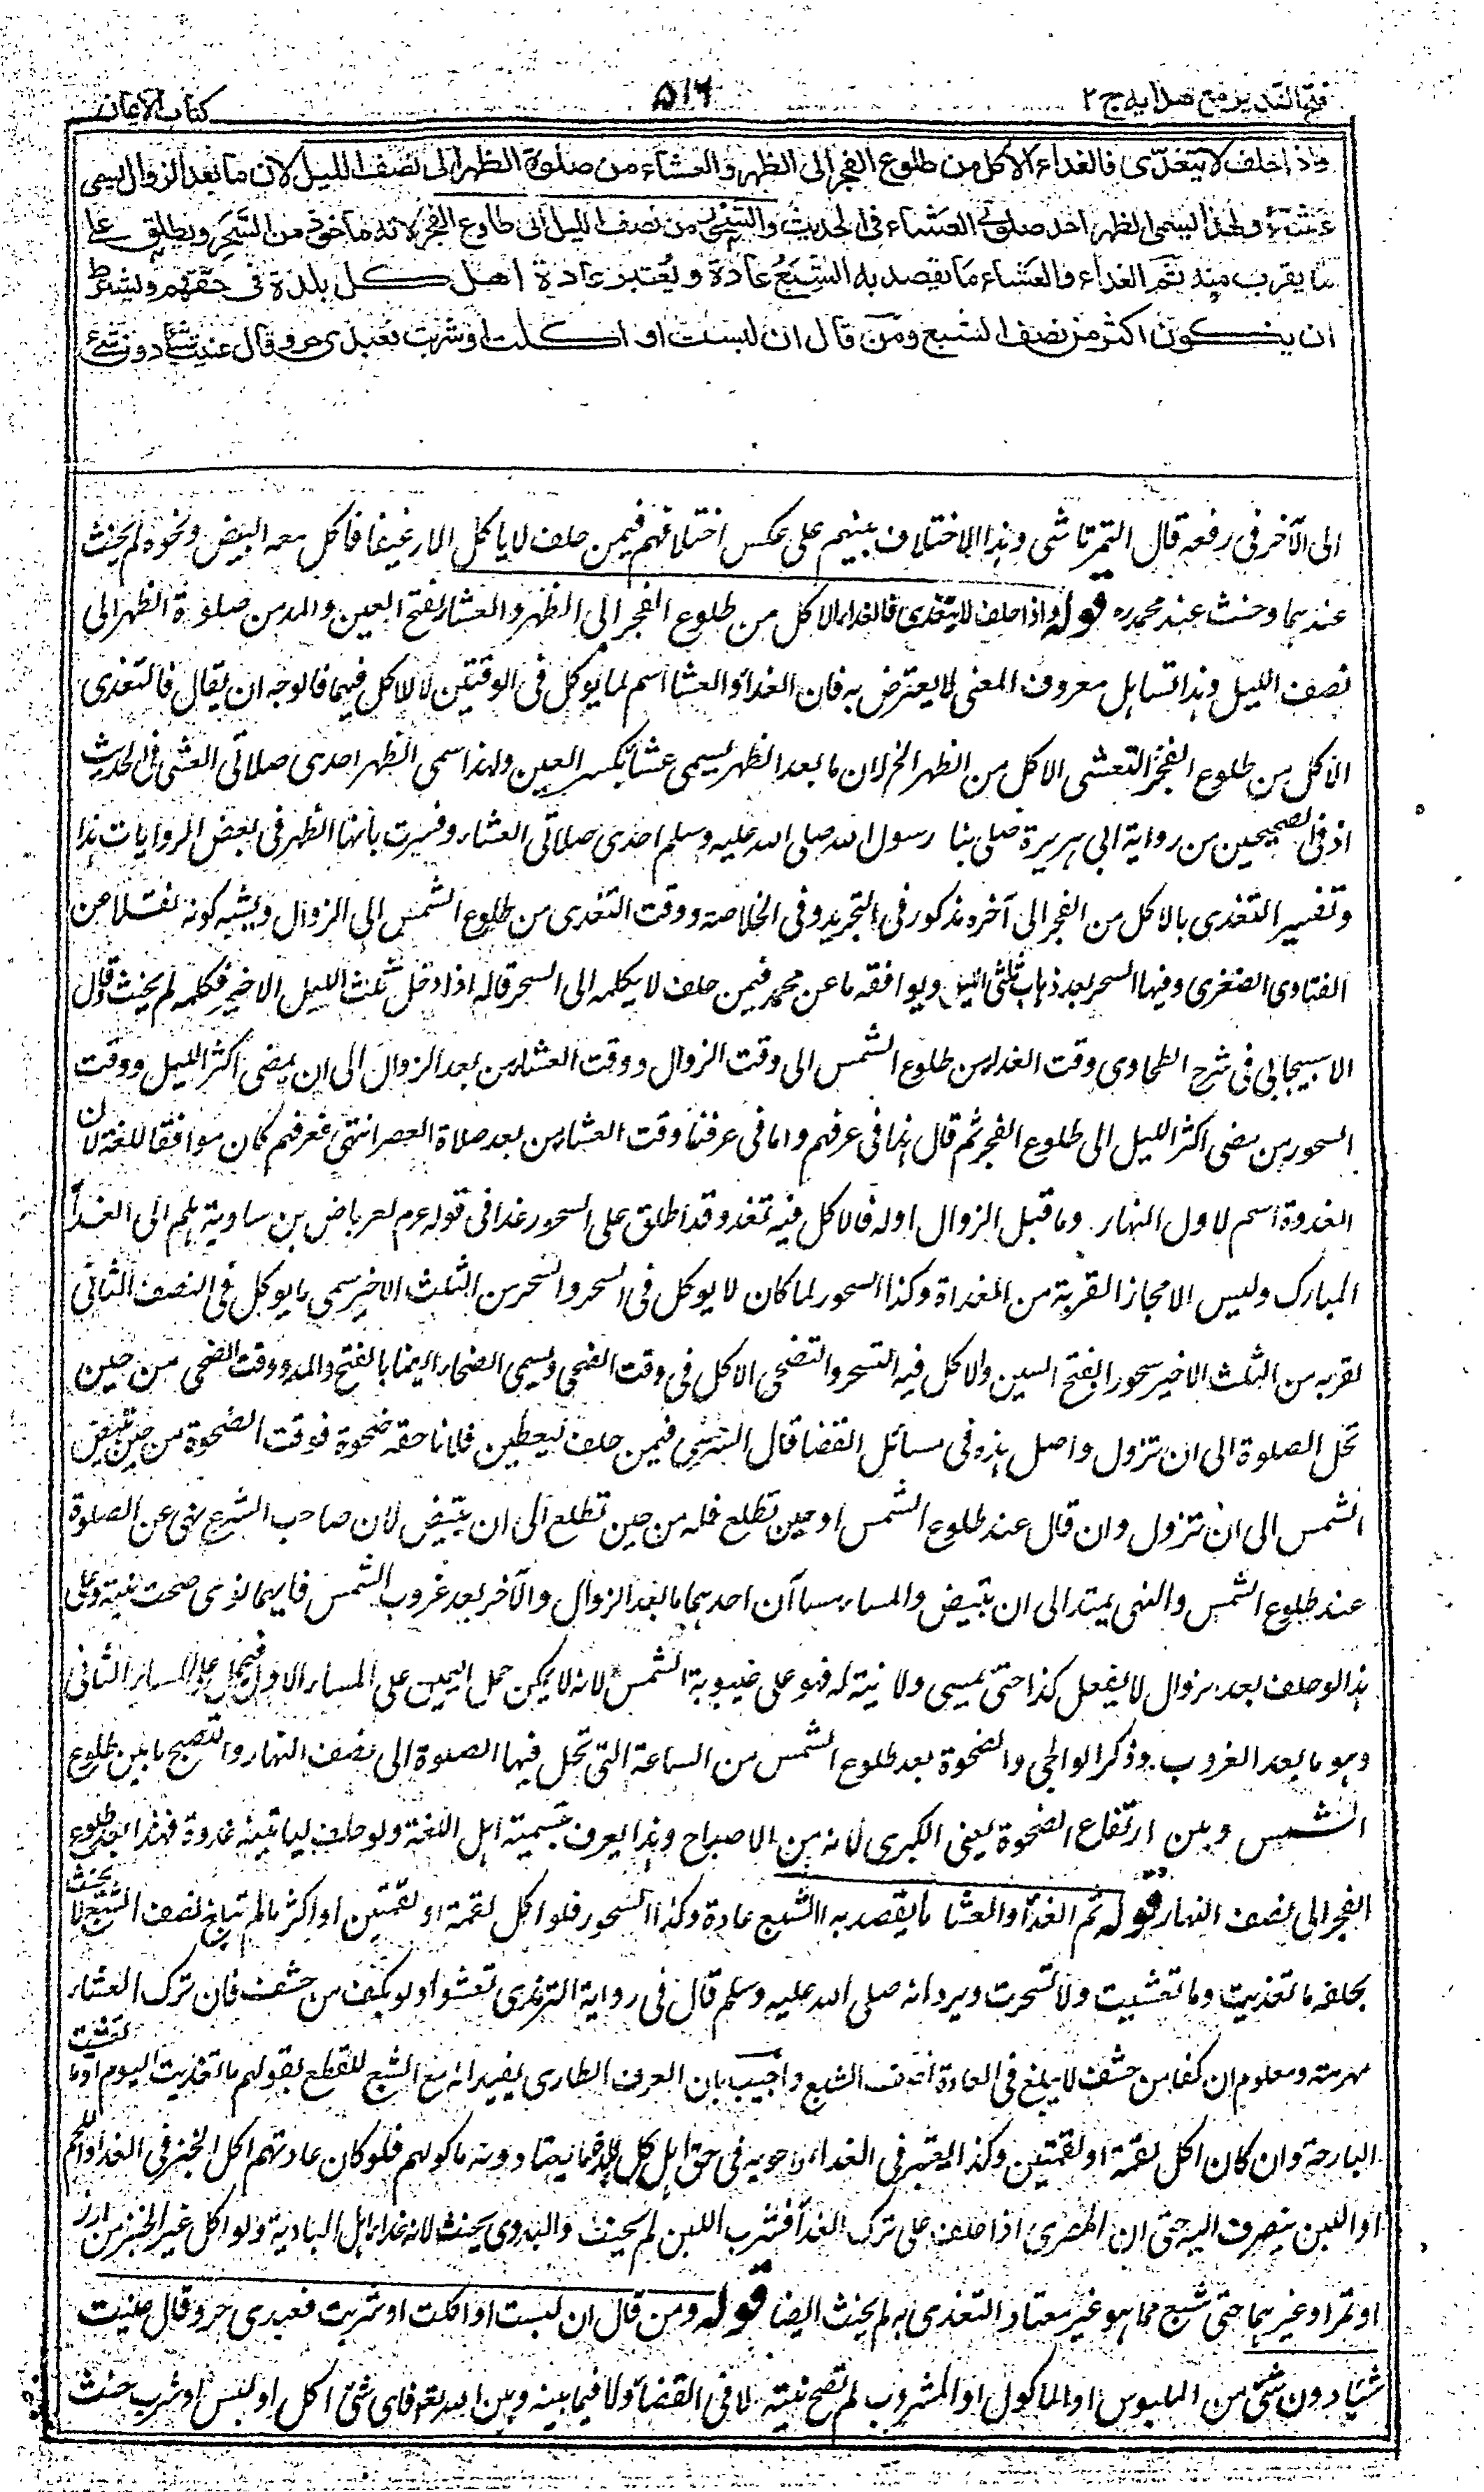 فتح القدير مع هدايه ج ٢
٥١٦
كتاب الايمان
واذا حلف لا يتغدّى فالغداء الاكل من طلوع الفجر الى الظهر والعشاء من صلوة الظهر الى نصف الليل لان ما بعد الزوال يسمى
عشاء ولهذا يسمى الظهر احد صلوتى العشاء فى الحديث والسحور من نصف الليل الى طلوع الفجر لانه ماخوذ من السحر ويطلق على
ما يقرب منه ثم الغداء والعشاء ما يقصد به الشبع عادة ويعتبر عادة اهل كل بلدة فى حقهم ويشترط
ان يكون اكثر من نصف الشبع ومن قال ان لبست او اكلت او شربت فعبدى حر وقال عنيت شيئا دون شئ
الى الآخر فى رفعه قال التمرتاشى وهذا الاختلاف بينهم على عكس اختلافهم فيمن حلف لا ياكل الا رغيفا فاكل معه البيض ونحوه لم يحنث
عندهما وحنث عند محمد ره قوله واذا حلف لا يتغدى فالغداء الاكل من طلوع الفجر الى الظهر والعشاء بفتح العين والمد من صلوة الظهر الى
نصف الليل وهذا تساهل معروف المعنى لا يعترض به فان الغداء والعشا اسم لما يوكل فى الوقتين لا للاكل فيهما فالوجه ان يقال فالتغدى
الاكل من طلوع الفجر والتعشى الاكل من الظهر الخ لان ما بعد الظهر يسمى عشا بكسر العين ولهذا سمى الظهر احدى صلاتى العشى فى الحديث
اذ فى الصحيحين من رواية ابى هريرة صلى بنا رسول الله صلى الله عليه وسلم احدى صلاتى العشاء وفسرت بانها الظهر فى بعض الروايات هذا
وتفسير التغدى بالاكل من الفجر الى آخره مذكور فى التجريد وفى الخلاصة ووقت التغدى من طلوع الشمس الى الزوال ويشبه كونه نقلا من
الفتاوى الصغرى وفيها السحر بعد ذهاب ثلثى الليل ويوافقه ما عن محمد فيمن حلف لا يكلمه الى السحر قال اذا دخل ثلث الليل الاخير فكلمه لم يحنث وقال
الاسبيجابى فى شرح الطحاوى وقت الغداء من طلوع الشمس الى وقت الزوال ووقت العشاء من بعد الزوال الى ان يمضى اكثر الليل ووقت
السحور من مضى اكثر الليل الى طلوع الفجر ثم قال هذا فى عرفهم واما فى عرفنا وقت العشاء من بعد صلاة العصر انتهى فعرفهم كان موافقا للغة لان
الغدوة اسم لاول النهار وما قبل الزوال اوله فالاكل فيه تغد وقد اطلق على السحور غدا فى قوله عم لعرباض بن سارية هلم الى الغداء
المبارك وليس الا مجازا لقربه من الغداة وكذا السحور لما كان لا يوكل فى السحر والسحر من الثلث الاخير سمى ما يوكل فى النصف الثانى
لقربه من الثلث الاخير سحورا بفتح السين والاكل فيه التسحر والتضحى الاكل فى وقت الضحى ويسمى الضحاء ايضا بالفتح والمد ووقت الضحى من حين
تحل الصلوة الى ان تزول واصل هذه فى مسائل القضا قال السرخسى فيمن حلف ليعطين فلانا حقه ضحوة فوقت الضحوة من حين تبيض
الشمس الى ان تزول وان قال عند طلوع الشمس او حين تطلع فله من حين تطلع الى ان تبيض لان صاحب الشرع نهى عن الصلوة
عند طلوع الشمس والنهى يمتد الى ان تبيض والمساء مساآن احدهما ما بعد الزوال والآخر بعد غروب الشمس فايهما نوى صحت نيته وعلى
هذا لو حلف بعد الزوال لا يفعل كذا حتى يمسى ولا نية له فهو على غيبوبة الشمس لانه لا يمكن حمل اليمين على المساء الاول فيحمل على المساء الثانى
وهو ما بعد الغروب وذكر الوالجى والضحوة بعد طلوع الشمس من الساعة التى تحل فيها الصلوة الى نصف النهار والتصبح ما بين طلوع
الشمس وبين ارتفاع الضحوة يعنى الكبرى لانه من الاصباح وهذا يعرف بتسمية اهل اللغة ولو حلف لياتينه غدوة فهذا بعد طلوع
الفجر الى نصف النهار قوله ثم الغداء والعشا ما يقصد به الشبع عادة وكذا السحور فلو اكل لقمة او لقمتين او اكثر ما لم تبلغ نصف الشبع لا يحنث
بحلفه ما تغديت وما تعشيت ولا تسحرت ويرد انه صلى الله عليه وسلم قال فى رواية الترمذى تعشوا ولو بكف من حشف فان ترك العشاء
مهرمة ومعلوم ان كفا من حشف لا يبلغ فى العادة نصف الشبع واجيب بان العرف الطارى يفيد انه مع الشبع للقطع بقولهم ما تغديت اليوم او ما تعشيت
البارحة وان كان اكل لقمة او لقمتين وكذا يعتبر فى الغداء وأخويه فى حق اهل كل بلد ما يعتادونه ماكولهم فلو كان عادتهم اكل الخبز فى الغداء او اللحم
او اللبن ينصرف اليه حتى ان المصرى اذا حلف على ترك الغدا فشرب اللبن لم يحنث والبدوى يحنث لانه غداء اهل البادية ولو اكل غير الخبز من ارز
او تمر او غيرهما حتى شبع مما هو غير معتاد التغدى به لم يحنث ايضا قوله ومن قال ان لبست او اكلت او شربت فعبدى حر وقال عنيت
شيئا دون شئ من الملبوس او الماكول او المشروب لم تصح نيته لا فى القضاء ولا فيما بينه وبين الله تعو فاى شئ اكل او لبس او شرب حنث